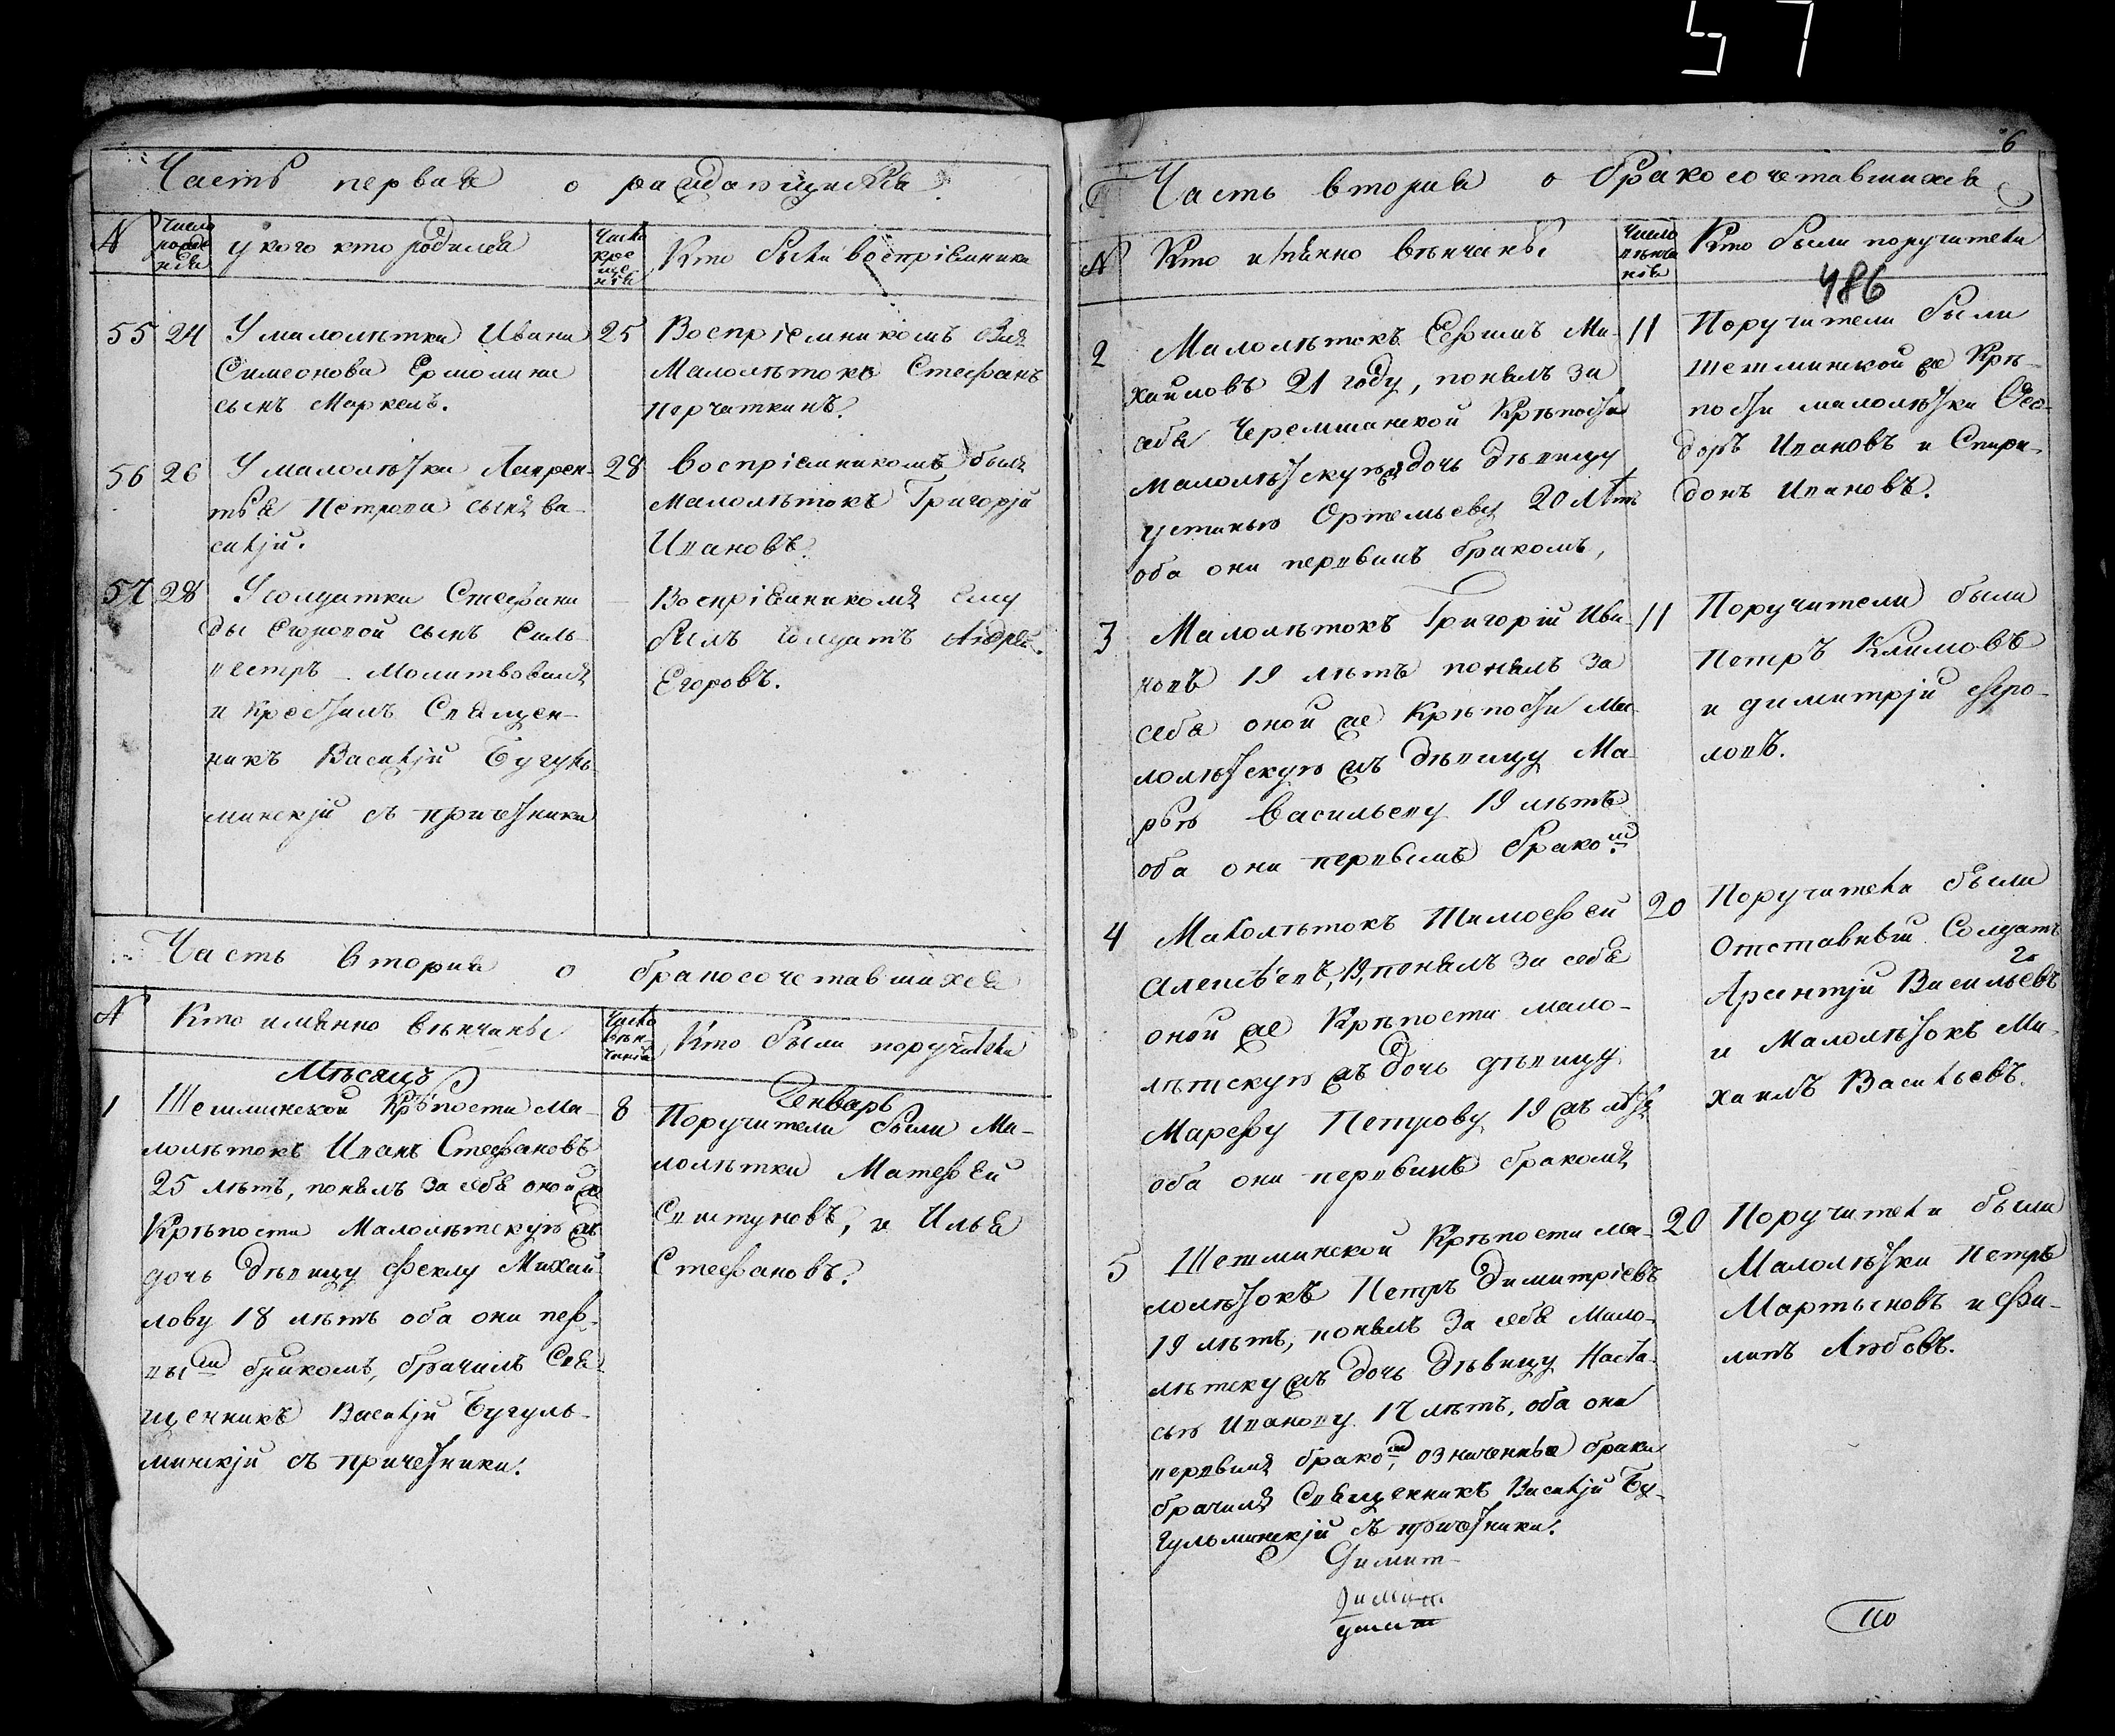 57
Часть первая о раждающихся
N
Число рожденія
у кого кто родился
Число крещенія
Кто были воспріемники
55 24 У малолѣтка Ивана 25
Симеонова Ермолина
сынъ Маркелъ.
Воспріемникомъ был
Малолѣтокъ Стефанъ
Перчаткинъ.
56 26 У малолѣтка Лаврен- 28
тья Петрова сынъ Ва-
силій.
воспріемникомъ был
Малолѣтокъ Григорій
Ивановъ.
57 28 У солдатки Стефани
ды Егоровой сынъ Силь-
вестръ молитвовал
и крестилъ Священ-
никъ Василій Бугуль-
минскій съ причетники
Воспріемникомъ ему
былъ Солдатъ Андрей
Егоровъ.
Часть вторая о бракосочетавшихся
N
Кто имянно вѣнчаны
Число вѣнчанія
Кто были поручители
Мѣсяцъ Генварь
1 Шешминской Крѣпости Ма- 8
лолѣтокъ Иванъ Стефановъ
25 лѣтъ, понялъ за себя оной же
Крѣпости Малолѣтскую жъ
дочь дѣвицу Феклу Михай-
лову 18 лѣтъ оба они пер-
вымъ бракомъ, брачилъ Свя-
щенникъ Василій Бугуль-
минскій съ причетники.
Поручители были Ма-
лолѣтки Матфей
Свистуновъ, и Илья
Стефановъ.
6
Часть вторая о бракосочетавшихся
N
Кто имянно вѣнчаны
Число вѣнчанія
Кто были поручители
486
2 Малолѣтокъ Ефимъ Ми- 11
хайловъ 21 году, понялъ за
себя Черемшанской Крѣпости
малолѣтскую дочь дѣвицу
Устинью Ортемьеву 20 лѣтъ
оба они первымъ бракомъ,
Поручители были
Шешминской же Крѣ-
пости малолѣтки Фео-
доръ Ивановъ и Спири-
донъ Ивановъ.
3 Малолѣтокъ Григорій Ива- 11
новъ 19 лѣтъ понялъ за
себя оной же Крѣпости Ма-
лолѣтскую жъ дѣвицу Ма-
рью Васильеву 19 лѣтъ
оба они первымъ бракомъ
Поручители были
Петръ Климовъ
и Димитрій Фро-
ловъ.
4 Малолѣтокъ Тимофей 20
Алексѣевъ, 19, понялъ за себя
оной же Крѣпости мало-
лѣтскую жъ дочь дѣвицу
Марфу Петрову 19 жъ лѣтъ
оба они первымъ бракомъ
Поручители были
Отставный Солдатъ
Арсентій Васильевъ
и Малолѣтокъ Ми-
хаилъ Васильевъ.
5 Шешминской Крѣпости ма- 20
лолѣтокъ Петръ Димитріевъ
19 лѣтъ, понялъ за себя Мало-
лѣтску жъ дочь дѣвицу Наста-
сью Иванову 17 лѣтъ, оба они
первымъ бракомъ, означенные браки
брачилъ Священникъ Василій Бу-
гульминскій съ причетники.
Поручители были
Малолѣтки Петръ
Мартыновъ и Фи-
липъ Любовъ.
Димит
димит
димит
по